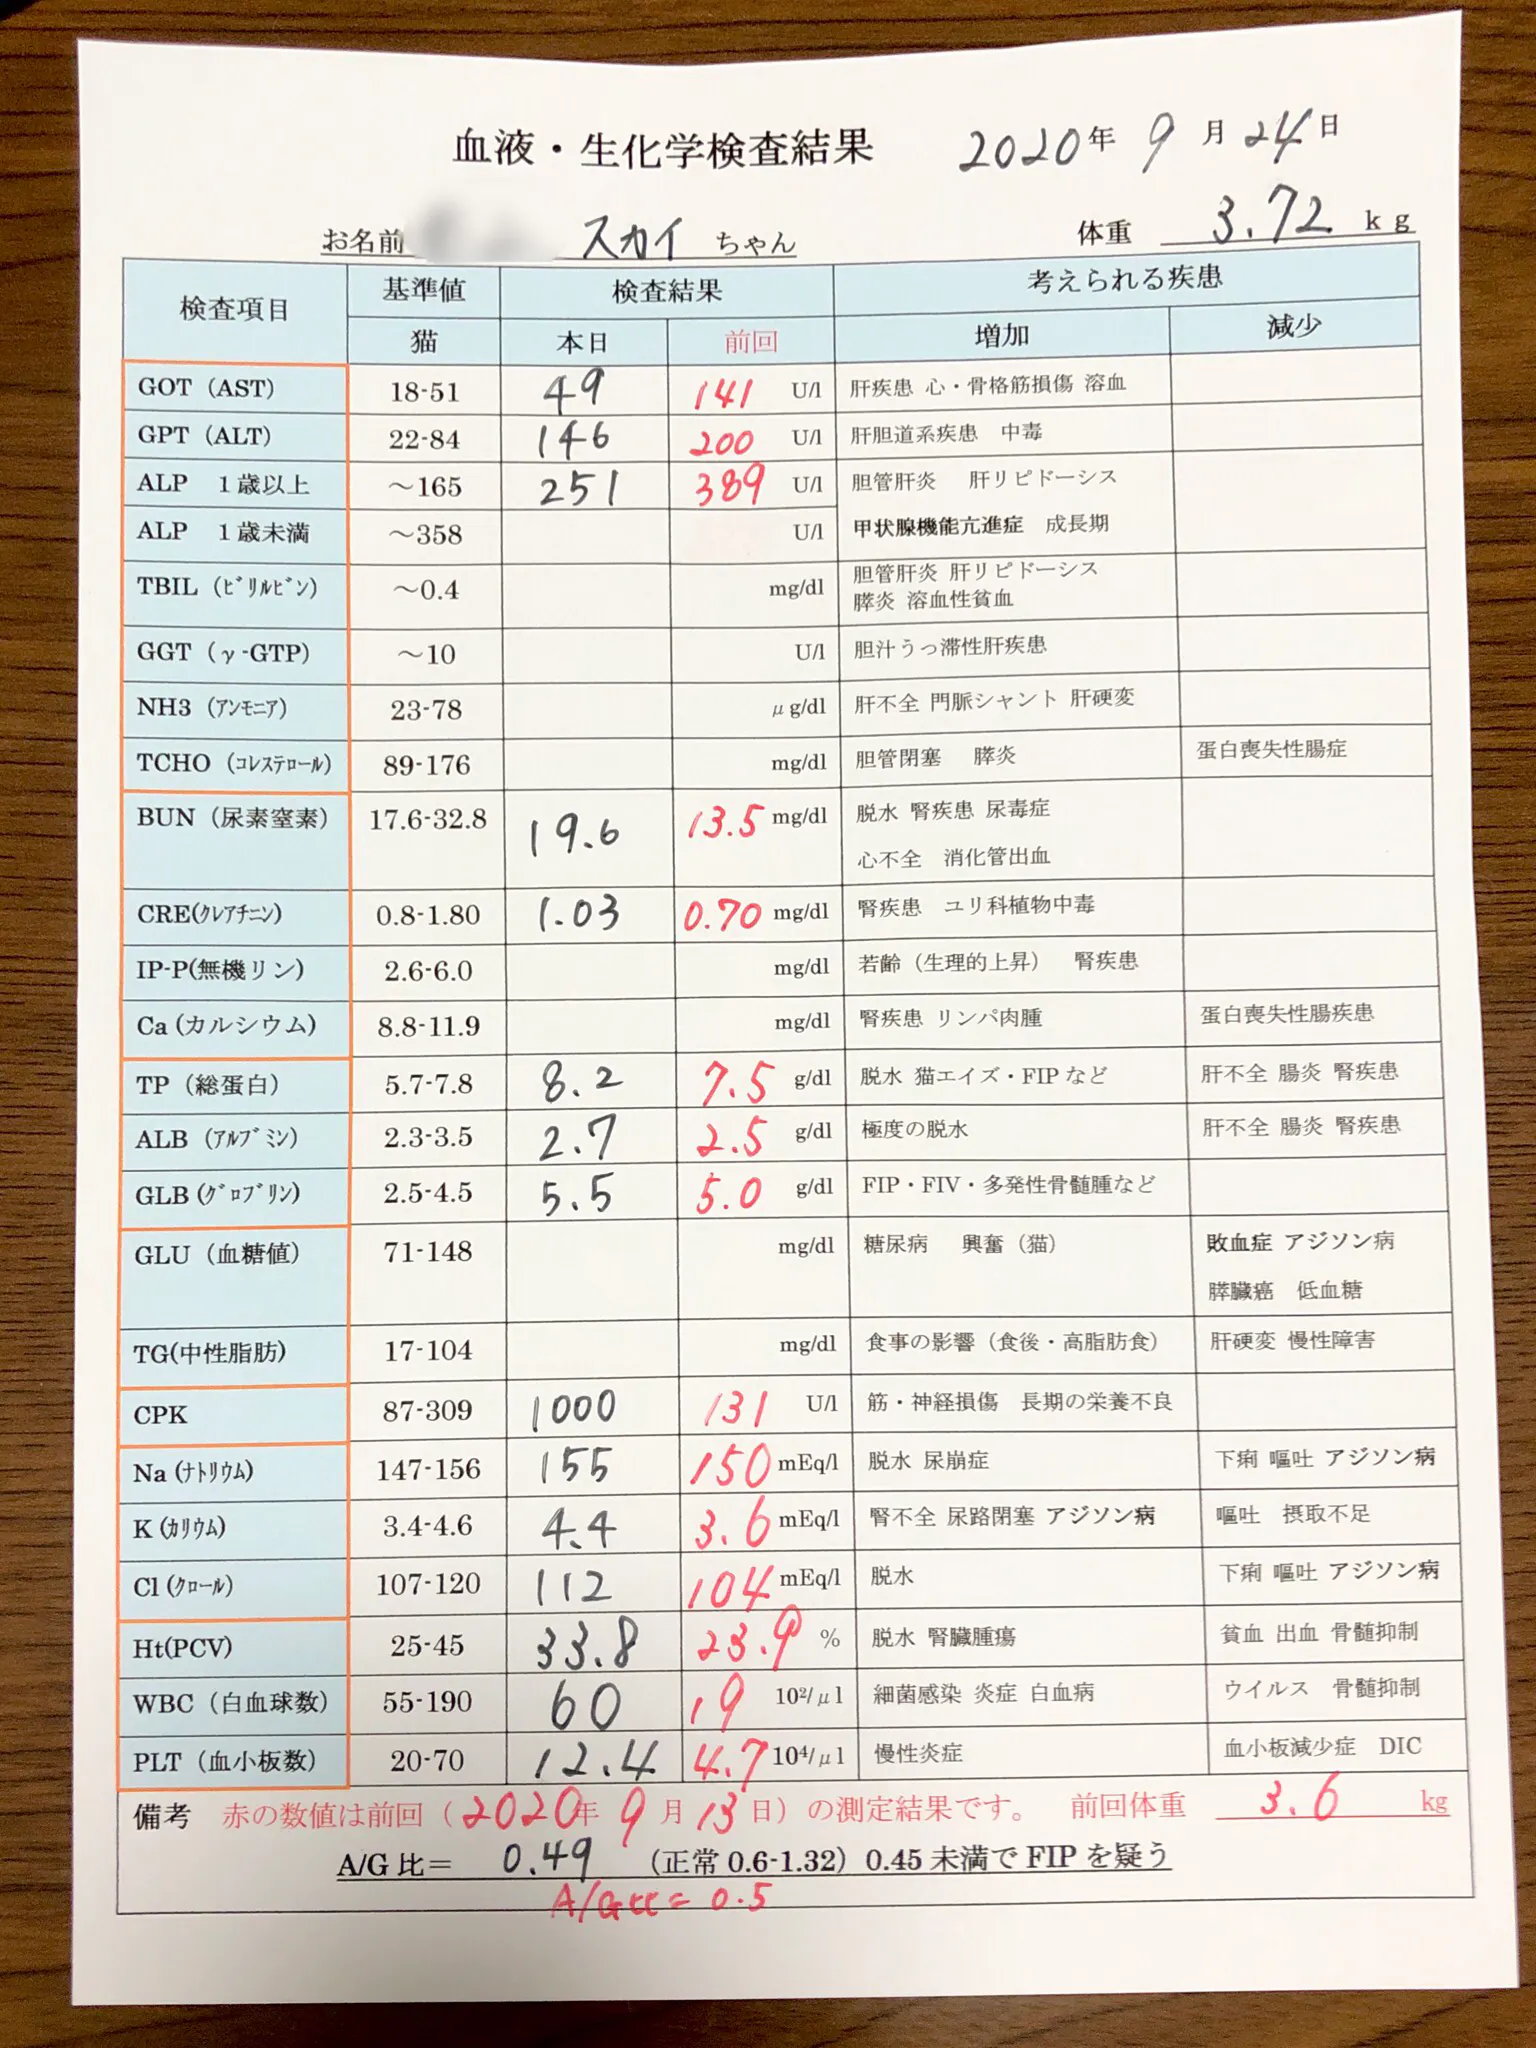 血液・生化学検査結果 2020年 9月 24日
お名前 スカイ ちゃん 体重 3.72 kg
検査項目 基準値 検査結果 考えられる疾患
猫 本日 前回 増加 減少
GOT（AST） 18-51 49 141 U/l 肝疾患 心・骨格筋損傷 溶血
GPT（ALT） 22-84 146 200 U/l 肝胆道系疾患 中毒
ALP 1歳以上 ～165 251 389 U/l 胆管肝炎 肝リピドーシス
ALP 1歳未満 ～358 U/l 甲状腺機能亢進症 成長期
TBIL（ﾋﾞﾘﾙﾋﾞﾝ） ～0.4 mg/dl 胆管肝炎 肝リピドーシス
膵炎 溶血性貧血
GGT（γ-GTP） ～10 U/l 胆汁うっ滞性肝疾患
NH3（ｱﾝﾓﾆｱ） 23-78 μg/dl 肝不全 門脈シャント 肝硬変
TCHO（ｺﾚｽﾃﾛｰﾙ） 89-176 mg/dl 胆管閉塞 膵炎 蛋白喪失性腸症
BUN（尿素窒素） 17.6-32.8 19.6 13.5 mg/dl 脱水 腎疾患 尿毒症
心不全 消化管出血
CRE(ｸﾚｱﾁﾆﾝ) 0.8-1.80 1.03 0.70 mg/dl 腎疾患 ユリ科植物中毒
IP-P(無機リン) 2.6-6.0 mg/dl 若齢（生理的上昇） 腎疾患
Ca(カルシウム) 8.8-11.9 mg/dl 腎疾患 リンパ肉腫 蛋白喪失性腸疾患
TP（総蛋白） 5.7-7.8 8.2 7.5 g/dl 脱水 猫エイズ・FIPなど 肝不全 腸炎 腎疾患
ALB（ｱﾙﾌﾞﾐﾝ） 2.3-3.5 2.7 2.5 g/dl 極度の脱水 肝不全 腸炎 腎疾患
GLB(ｸﾞﾛﾌﾞﾘﾝ) 2.5-4.5 5.5 5.0 g/dl FIP・FIV・多発性骨髄腫など
GLU（血糖値） 71-148 mg/dl 糖尿病 興奮（猫） 敗血症 アジソン病
膵臓癌 低血糖
TG(中性脂肪) 17-104 mg/dl 食事の影響（食後・高脂肪食） 肝硬変 慢性障害
CPK 87-309 1000 131 U/l 筋・神経損傷 長期の栄養不良
Na(ﾅﾄﾘｳﾑ) 147-156 155 150 mEq/l 脱水 尿崩症 下痢 嘔吐 アジソン病
K(ｶﾘｳﾑ) 3.4-4.6 4.4 3.6 mEq/l 腎不全 尿路閉塞 アジソン病 嘔吐 摂取不足
Cl(ｸﾛｰﾙ) 107-120 112 104 mEq/l 脱水 下痢 嘔吐 アジソン病
Ht(PCV) 25-45 33.8 23.9 % 脱水 腎臓腫瘍 貧血 出血 骨髄抑制
WBC（白血球数） 55-190 60 19 10²/μl 細菌感染 炎症 白血病 ウイルス 骨髄抑制
PLT（血小板数） 20-70 12.4 4.7 10⁴/μl 慢性炎症 血小板減少症 DIC
備考 赤の数値は前回（2020年 9月 13日）の測定結果です。 前回体重 3.6 kg
A/G比＝ 0.49 （正常0.6-1.32）0.45未満でFIPを疑う
A/G比＝ 0.5